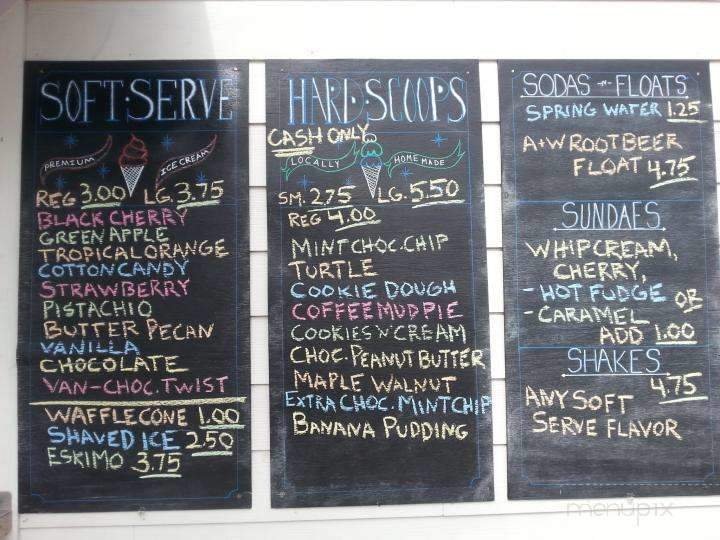 SOFT·SERVE
PREMIUM ICE CREAM
REG 3.00 LG. 3.75
BLACK CHERRY
GREEN APPLE
TROPICAL ORANGE
COTTON CANDY
STRAWBERRY
PISTACHIO
BUTTER PECAN
VANILLA
CHOCOLATE
VAN-CHOC. TWIST
WAFFLE CONE 1.00
SHAVED ICE 2.50
ESKIMO 3.75
HARD·SCOOPS
CASH ONLY
LOCALLY HOME MADE
SM. 2.75 LG. 5.50
REG 4.00
MINT CHOC. CHIP
TURTLE
COOKIE DOUGH
COFFEE MUD PIE
COOKIES 'N' CREAM
CHOC. PEANUT BUTTER
MAPLE WALNUT
EXTRA CHOC. MINT CHIP
BANANA PUDDING
SODAS -N- FLOATS
SPRING WATER 1.25
A+W ROOT BEER
FLOAT 4.75
SUNDAES
WHIP CREAM,
CHERRY,
- HOT FUDGE OR
- CARAMEL
ADD 1.00
SHAKES
4.75
ANY SOFT
SERVE FLAVOR
menupix